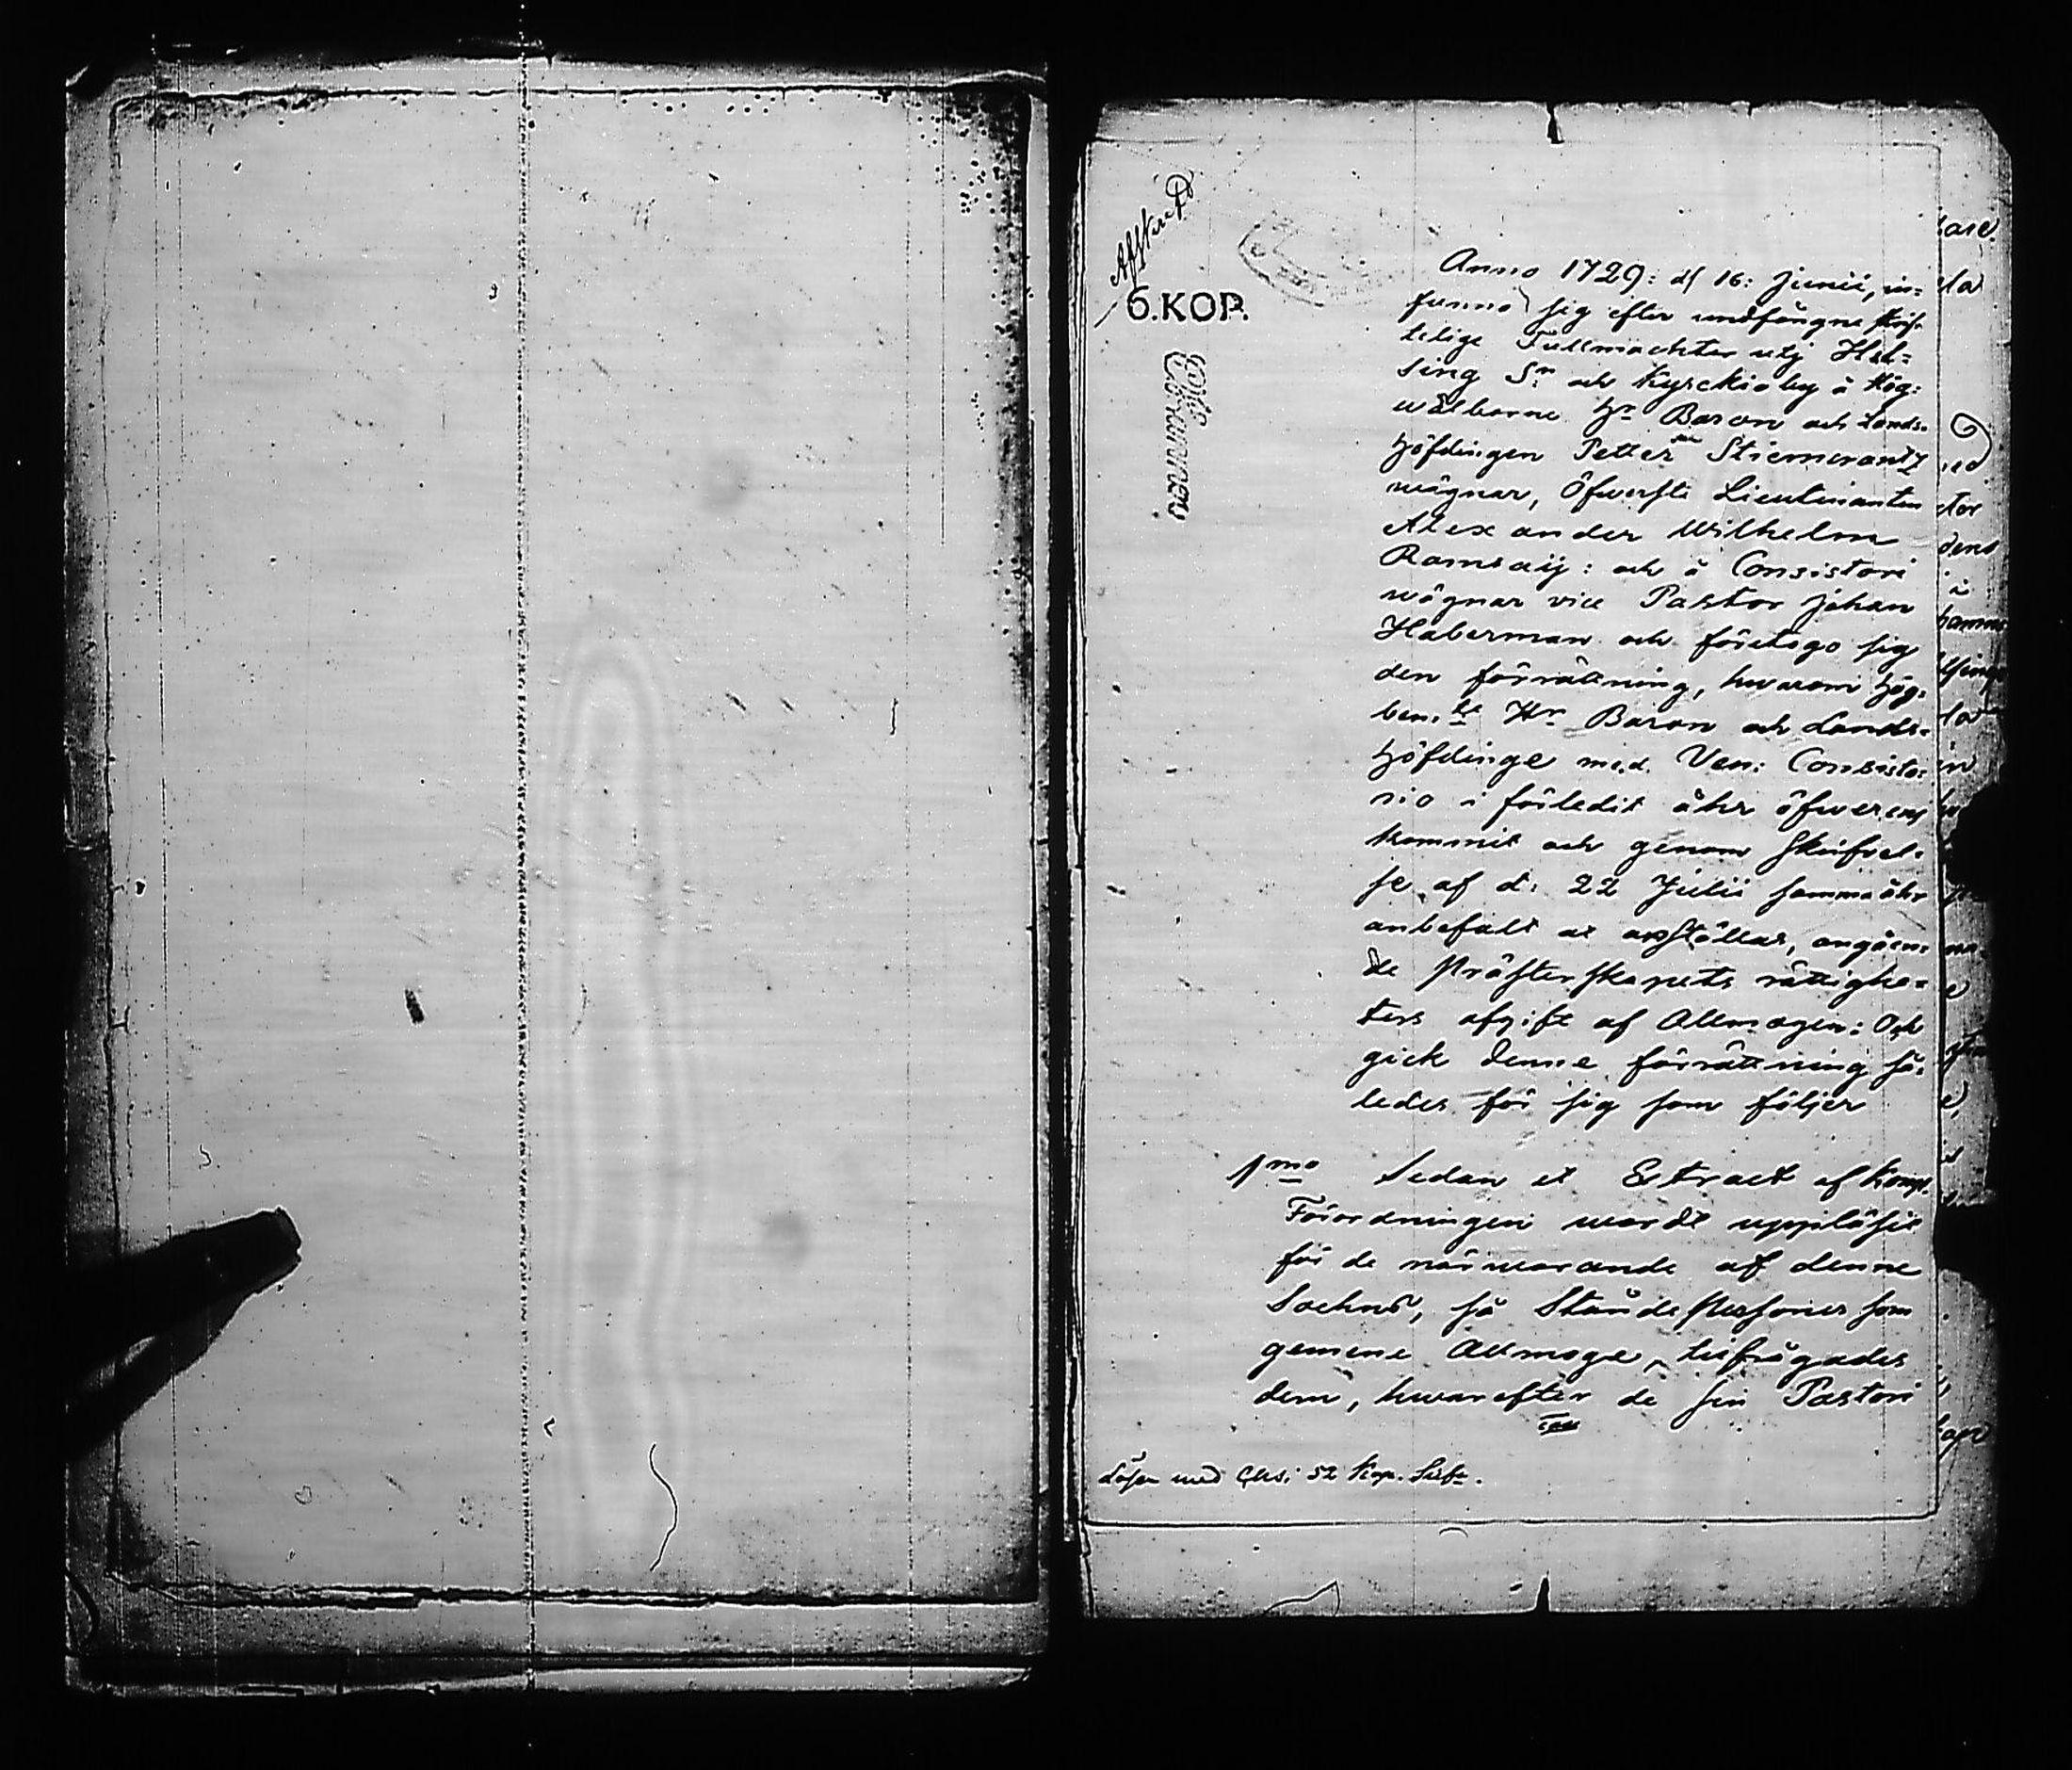 Afskrift
6. KOP.
Anno 1729: d. 16: Junii, in=
funno sig efter undfångne skrif-
telige Fullmachter utj Hel=
sing Sn och Kyrckioby å Hög:
wälborne Hr Baron och Lands-
höfdingen Petter Stiernerantz
wägnar, Öfwerste Lieutinanten
Alexander Wilhelm
Ramsaij: och å Consistorii
wägnar vice Pastor Johan
Haberman och företogo sig
den förrättning, hwarom hög-
bem.te Hr Baron och Lands-
höfdinge med Ven: Consisto-
rio i förledit åhr öfwerens
kommit och genom skrifvel-
se af d: 22 Julii samma åhr
anbefalt at anställas, angåen-
de Prästerskapets rättighe-
ters afgift af Allmogen: Och
gick denne förrättning så-
ledes för sig som följer
1mo Sedan et Extract af Kongl.
Förordningen wardt uppläsit
för de närwarande af denne
Sochnd, så Stånds Personer som
gemene Allmoge, tilfrågades
dem, hwarefter de sin Pastori
Lösen med 52 Kop. Silfr.